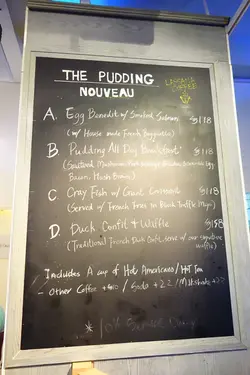 THE PUDDING
NOUVEAU
A. Egg Benedict w/ Smoked Salmon $118
(w/ House made French Baguette)
B. Pudding All Day Breakfast $118
(Sauteed Mushroom, Egg,
Bacon, Hash Brown)
C. Cray Fish w/ Croissant $118
(Served w/ French Fries in Black Truffle Mayo)
D. Duck Confit & Waffle $158
(Traditional French Duck Confit serve w/ our signature
Waffle)
Includes A cup of Hot Americano / Hot Tea
- Other Coffee +$10 / Soda +22 / Milkshake +22
* 10%